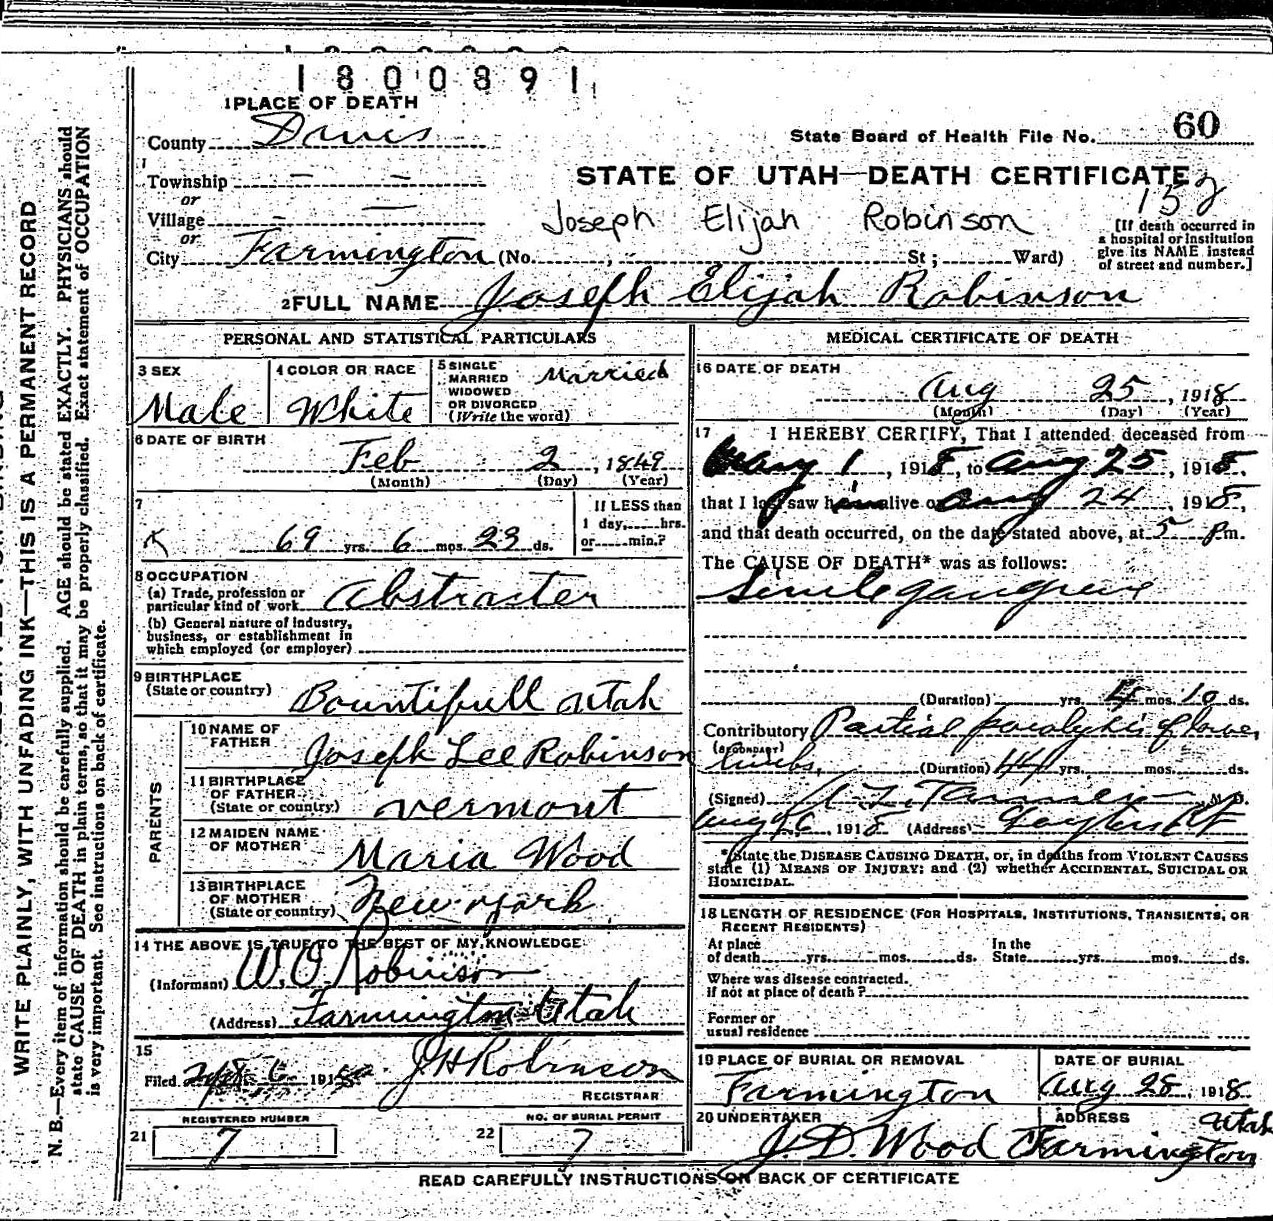 1800891
1 PLACE OF DEATH
County Davis
State Board of Health File No. 60
Township — —
or
STATE OF UTAH—DEATH CERTIFICATE
152
Village — —
or
Joseph Elijah Robinson
City Farmington (No. , St; Ward)
[If death occurred in
a hospital or institution
give its NAME instead
of street and number.]
2 FULL NAME Joseph Elijah Robinson
PERSONAL AND STATISTICAL PARTICULARS
3 SEX
Male
4 COLOR OR RACE
White
5 SINGLE
MARRIED
WIDOWED
OR DIVORCED
(Write the word)
Married
6 DATE OF BIRTH
Feb 2, 1849
(Month) (Day) (Year)
7
69 yrs. 6 mos. 23 ds.
If LESS than
1 day, hrs.
or min.?
8 OCCUPATION
(a) Trade, profession or
particular kind of work Abstracter
(b) General nature of industry,
business, or establishment in
which employed (or employer)
9 BIRTHPLACE
(State or country) Bountifull Utah
PARENTS
10 NAME OF
FATHER Joseph Lee Robinson
11 BIRTHPLACE
OF FATHER
(State or country) Vermont
12 MAIDEN NAME
OF MOTHER Maria Wood
13 BIRTHPLACE
OF MOTHER
(State or country) New York
14 THE ABOVE IS TRUE TO THE BEST OF MY KNOWLEDGE
(Informant) W. O. Robinson
(Address) Farmington Utah
15
Filed 6 191 J H Robinson
REGISTRAR
REGISTERED NUMBER
21 7
NO. OF BURIAL PERMIT
22 7
MEDICAL CERTIFICATE OF DEATH
16 DATE OF DEATH
Aug 25, 1918
(Month) (Day) (Year)
17 I HEREBY CERTIFY, That I attended deceased from
May 1, 1918, to Aug 25, 1918,
that I last saw him alive on Aug 24, 1918,
and that death occurred, on the date stated above, at 5 Pm.
The CAUSE OF DEATH* was as follows:
Senile gangrene
(Duration) yrs. 4 mos. 10 ds.
Contributory Partial paralysis of lower
(SECONDARY)
limbs, (Duration) 44 yrs. mos. ds.
(Signed) M. D.
Aug 26, 1918 (Address)
*State the DISEASE CAUSING DEATH, or, in deaths from VIOLENT CAUSES
state (1) MEANS OF INJURY; and (2) whether ACCIDENTAL, SUICIDAL OR
HOMICIDAL.
18 LENGTH OF RESIDENCE (FOR HOSPITALS, INSTITUTIONS, TRANSIENTS, OR
RECENT RESIDENTS)
At place
of death yrs. mos. ds.
In the
State yrs. mos. ds.
Where was disease contracted.
if not at place of death?
Former or
usual residence
19 PLACE OF BURIAL OR REMOVAL
Farmington
DATE OF BURIAL
Aug 28, 1918
20 UNDERTAKER
J. D. Wood
ADDRESS Utah
Farmington
READ CAREFULLY INSTRUCTIONS ON BACK OF CERTIFICATE
WRITE PLAINLY, WITH UNFADING INK—THIS IS A PERMANENT RECORD
N. B.—Every item of information should be carefully supplied. AGE should be stated EXACTLY. PHYSICIANS should
state CAUSE OF DEATH in plain terms, so that it may be properly classified. Exact statement of OCCUPATION
is very important. See instructions on back of certificate.